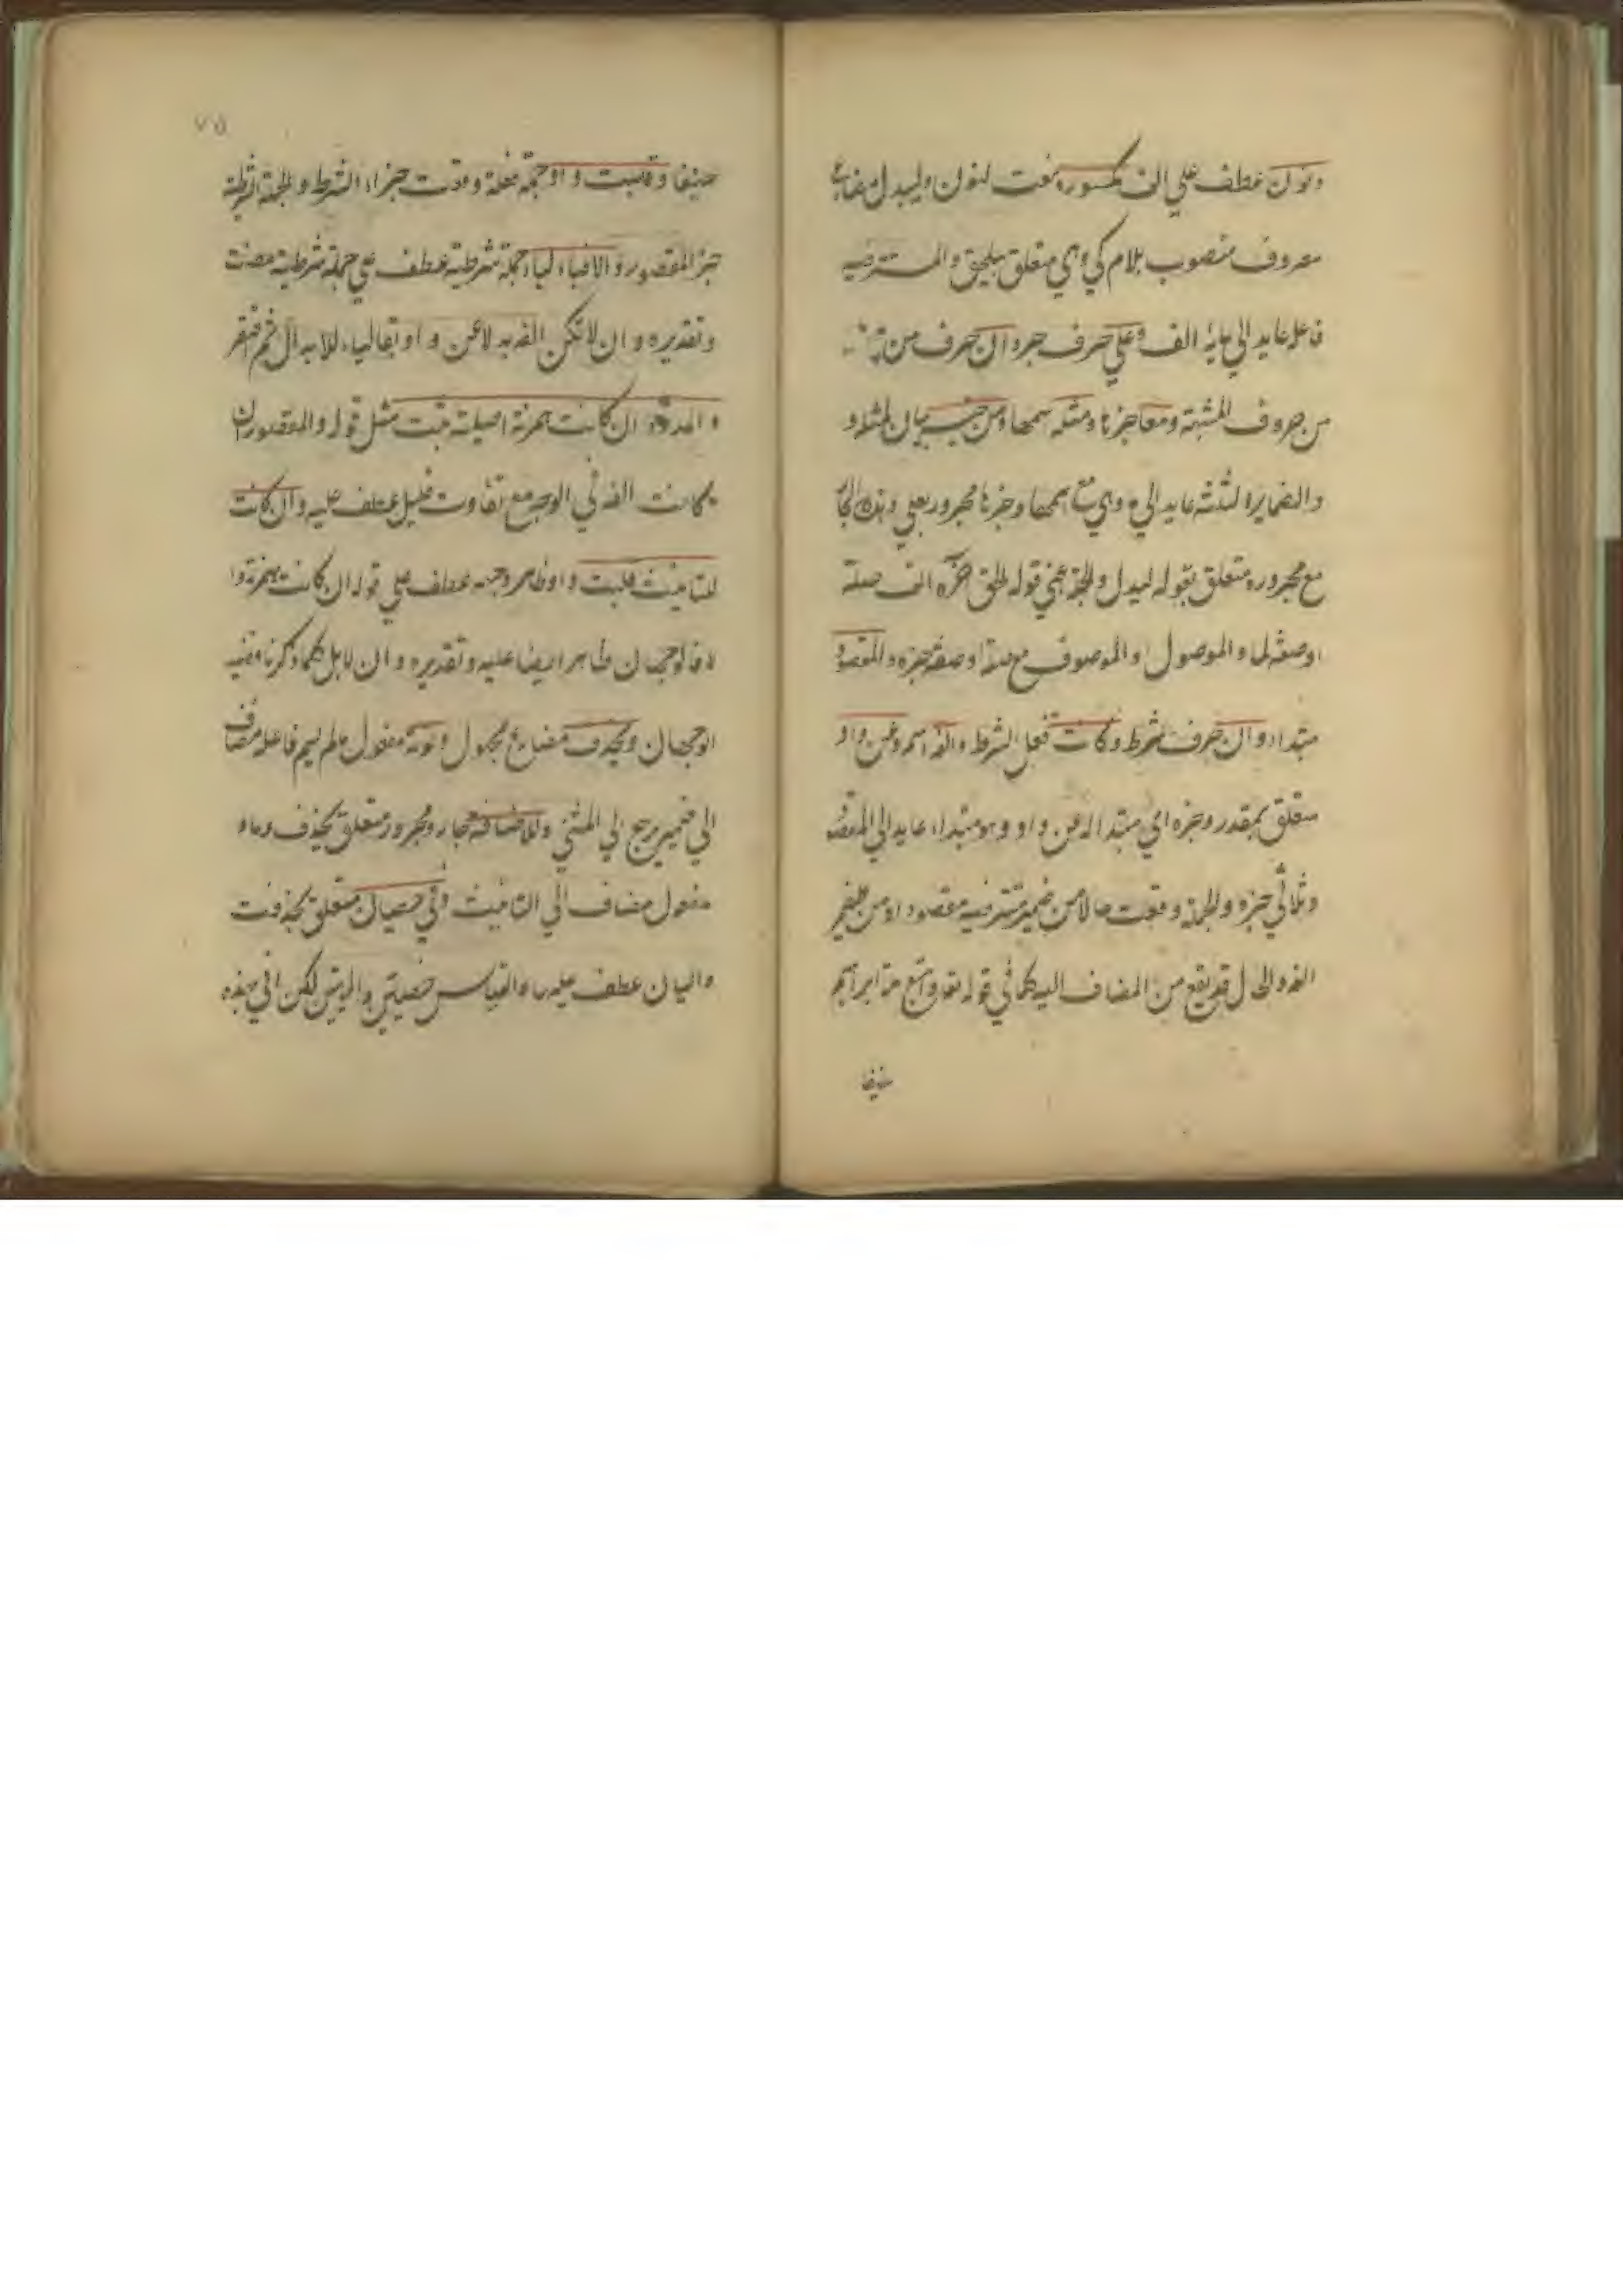 ونون عطف على الف مكسورة نعت لنون وليدل مضارع
معروف منصوب بلام كي وهي متعلق بيلحق والمستتر فيه
فاعل عايد الى ما الف وعلى حرف جر وان حرف من
من حروف المشبهة ومعه خبرها ومثله اسمها ومن جنسه بيان لمثله
والضماير الثلثة عايد الى وهي مع اسمها وخبرها مجرور بعلى وهذا الجار
مع مجروره متعلق بقوله ليدل والجملة يعني قوله لحق اخره الف صلة
او صفة لما والموصول او الموصوف مع صلته او صفته خبره والمقصور
مبتدا وان حرف شرط وكانت فعل الشرط والفه اسمه وعن واو
متعلق بمقدر وخبره اي مبتدالة عن واو وهو مبتدا عايد الى المقصور
وثلاثي خبره والجملة وقعت حالا من ضمير مستتر فيه مقصور او من ضمير
الفه والحال قد يقع من المضاف اليه كما في قوله تعا واتبع ملة ابراهيم
حنيفا
٧٥
حنيفا وقلبت واوا جملة فعلية وقعت جزاء الشرط والجملة الشرطية
خبر المقصور والا فبالياء جملة شرطية عطف على جملة شرطية مضت
وتقديره وان لا تكن الفه بدلا عن واو تقلب ياء
والممدود ان كانت همزته اصلية تثبت مثل قوله والمقصور ان
كانت الفه في الوجه مع تفاوت قليل عطف عليه وان كانت
للتانيث قلبت واوا ظاهر وجهه عطف على قوله ان كانت همزته وا
لا فالوجهان ظاهر ايضا عليه وتقديره وان لا بل كما ذكرنا ففيه
الوجهان ويحذف مضارع مجهول ونونه مفعول ما لم يسم فاعله مضاف
الى ضمير يرجع الى المثنى وللاضافة جار ومجرور متعلق بيحذف وتاء
مفعول مضاف الى التانيث وفي خصيان متعلق بحذفت
واليان عطف عليه والقياس خصيتين واليتين لكن في هذه